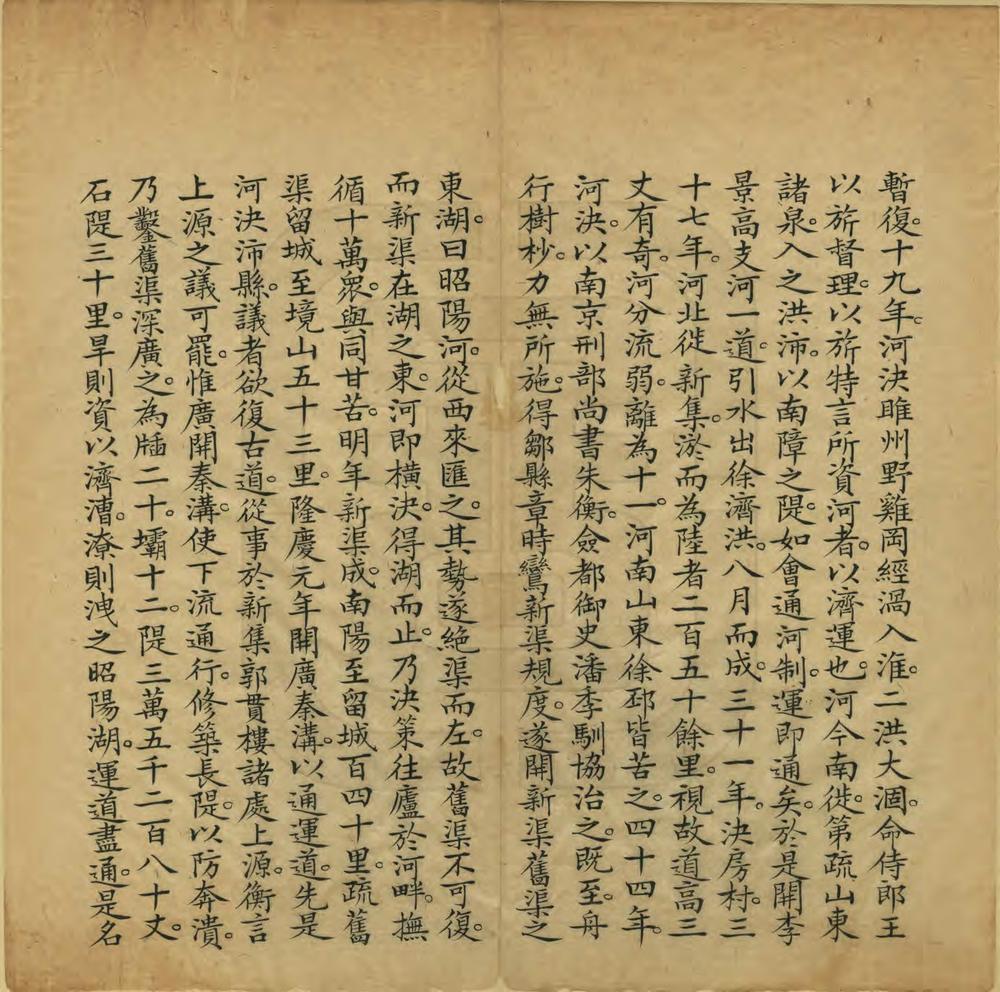 暫復。十九年。河決睢州野雞岡經渦入淮。二洪大涸。命侍郎王
以旂督理。以旂特言所資河者。以濟運也。河今南徙。第疏山東
諸泉。入之洪沛。以南障之隄。如會通河制。運即通矣。於是開李
景高支河一道。引水出徐濟洪。八月而成。三十一年。決房村。三
十七年。河北徙新集。淤而為陸者二百五十餘里。視故道高三
丈有奇。河分流弱。離為十一。河南山東徐邳皆苦之。四十四年。
河決。以南京刑部尚書朱衡。僉都御史潘季馴協治之。既至。舟
行樹杪。力無所施。得鄒縣章時鸞新渠規度。遂開新渠。舊渠之
東湖。曰昭陽河。從西來匯之。其勢遂絕渠而左。故舊渠不可復。
而新渠在湖之東。河即橫決。得湖而止。乃決策往廬於河畔。撫
循十萬眾。與同甘苦。明年新渠成。南陽至留城百四十里。疏舊
渠留城至境山五十三里。隆慶元年開廣秦溝。以通運道。先是
河決沛縣。議者欲復古道。從事於新集郭貫樓諸處上源。衡言
上源之議可罷。惟廣開秦溝。使下流通行。修築長隄。以防奔潰。
乃鑿舊渠深廣之。為牐二十。壩十二。隄三萬五千二百八十丈。
石隄三十里。旱則資以濟漕。潦則洩之昭陽湖。運道盡通。是名